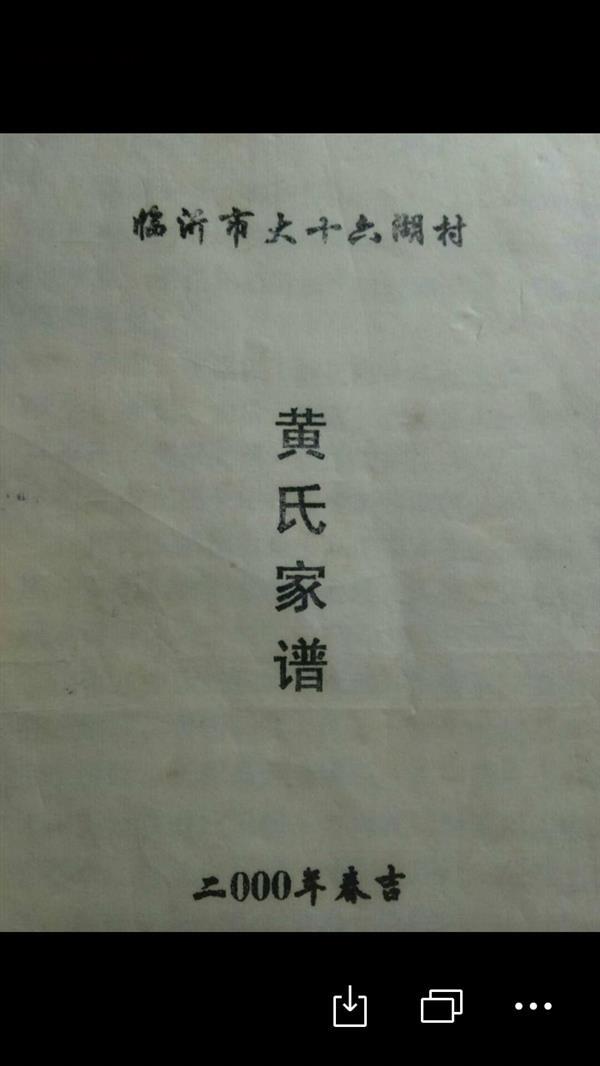 临沂市大十六湖村
黄氏家谱
二000年春吉